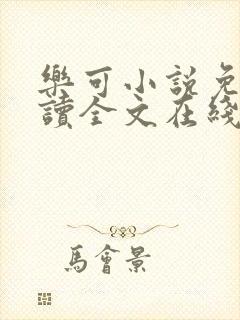 樂可小說免
讀全文在綫
馬會景